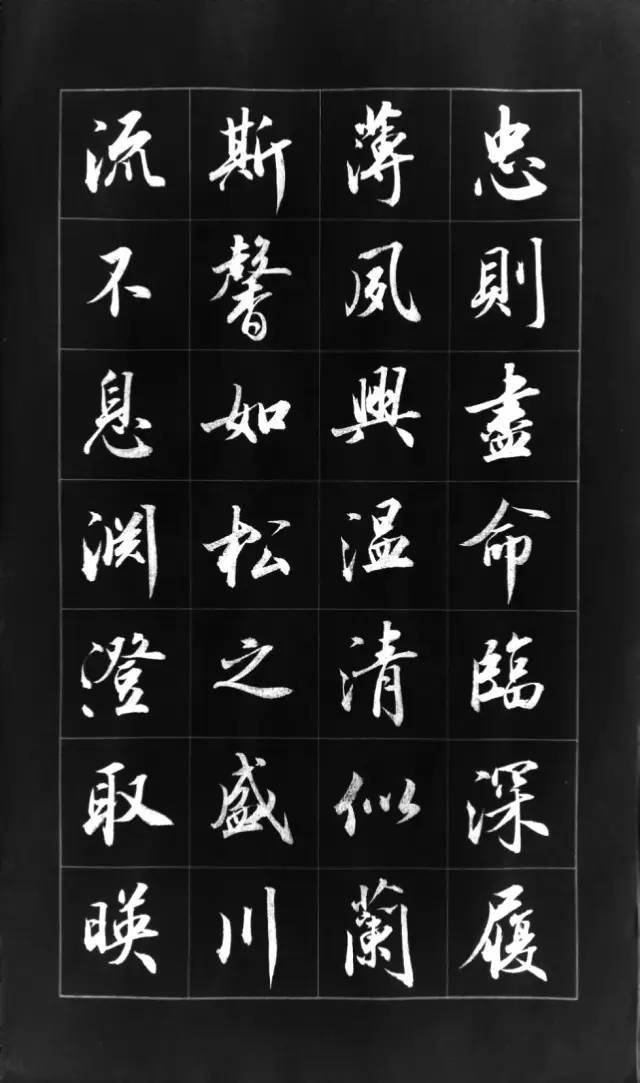 忠則盡命臨深履
薄夙興温清似蘭
斯馨如松之盛川
流不息淵澄取暎